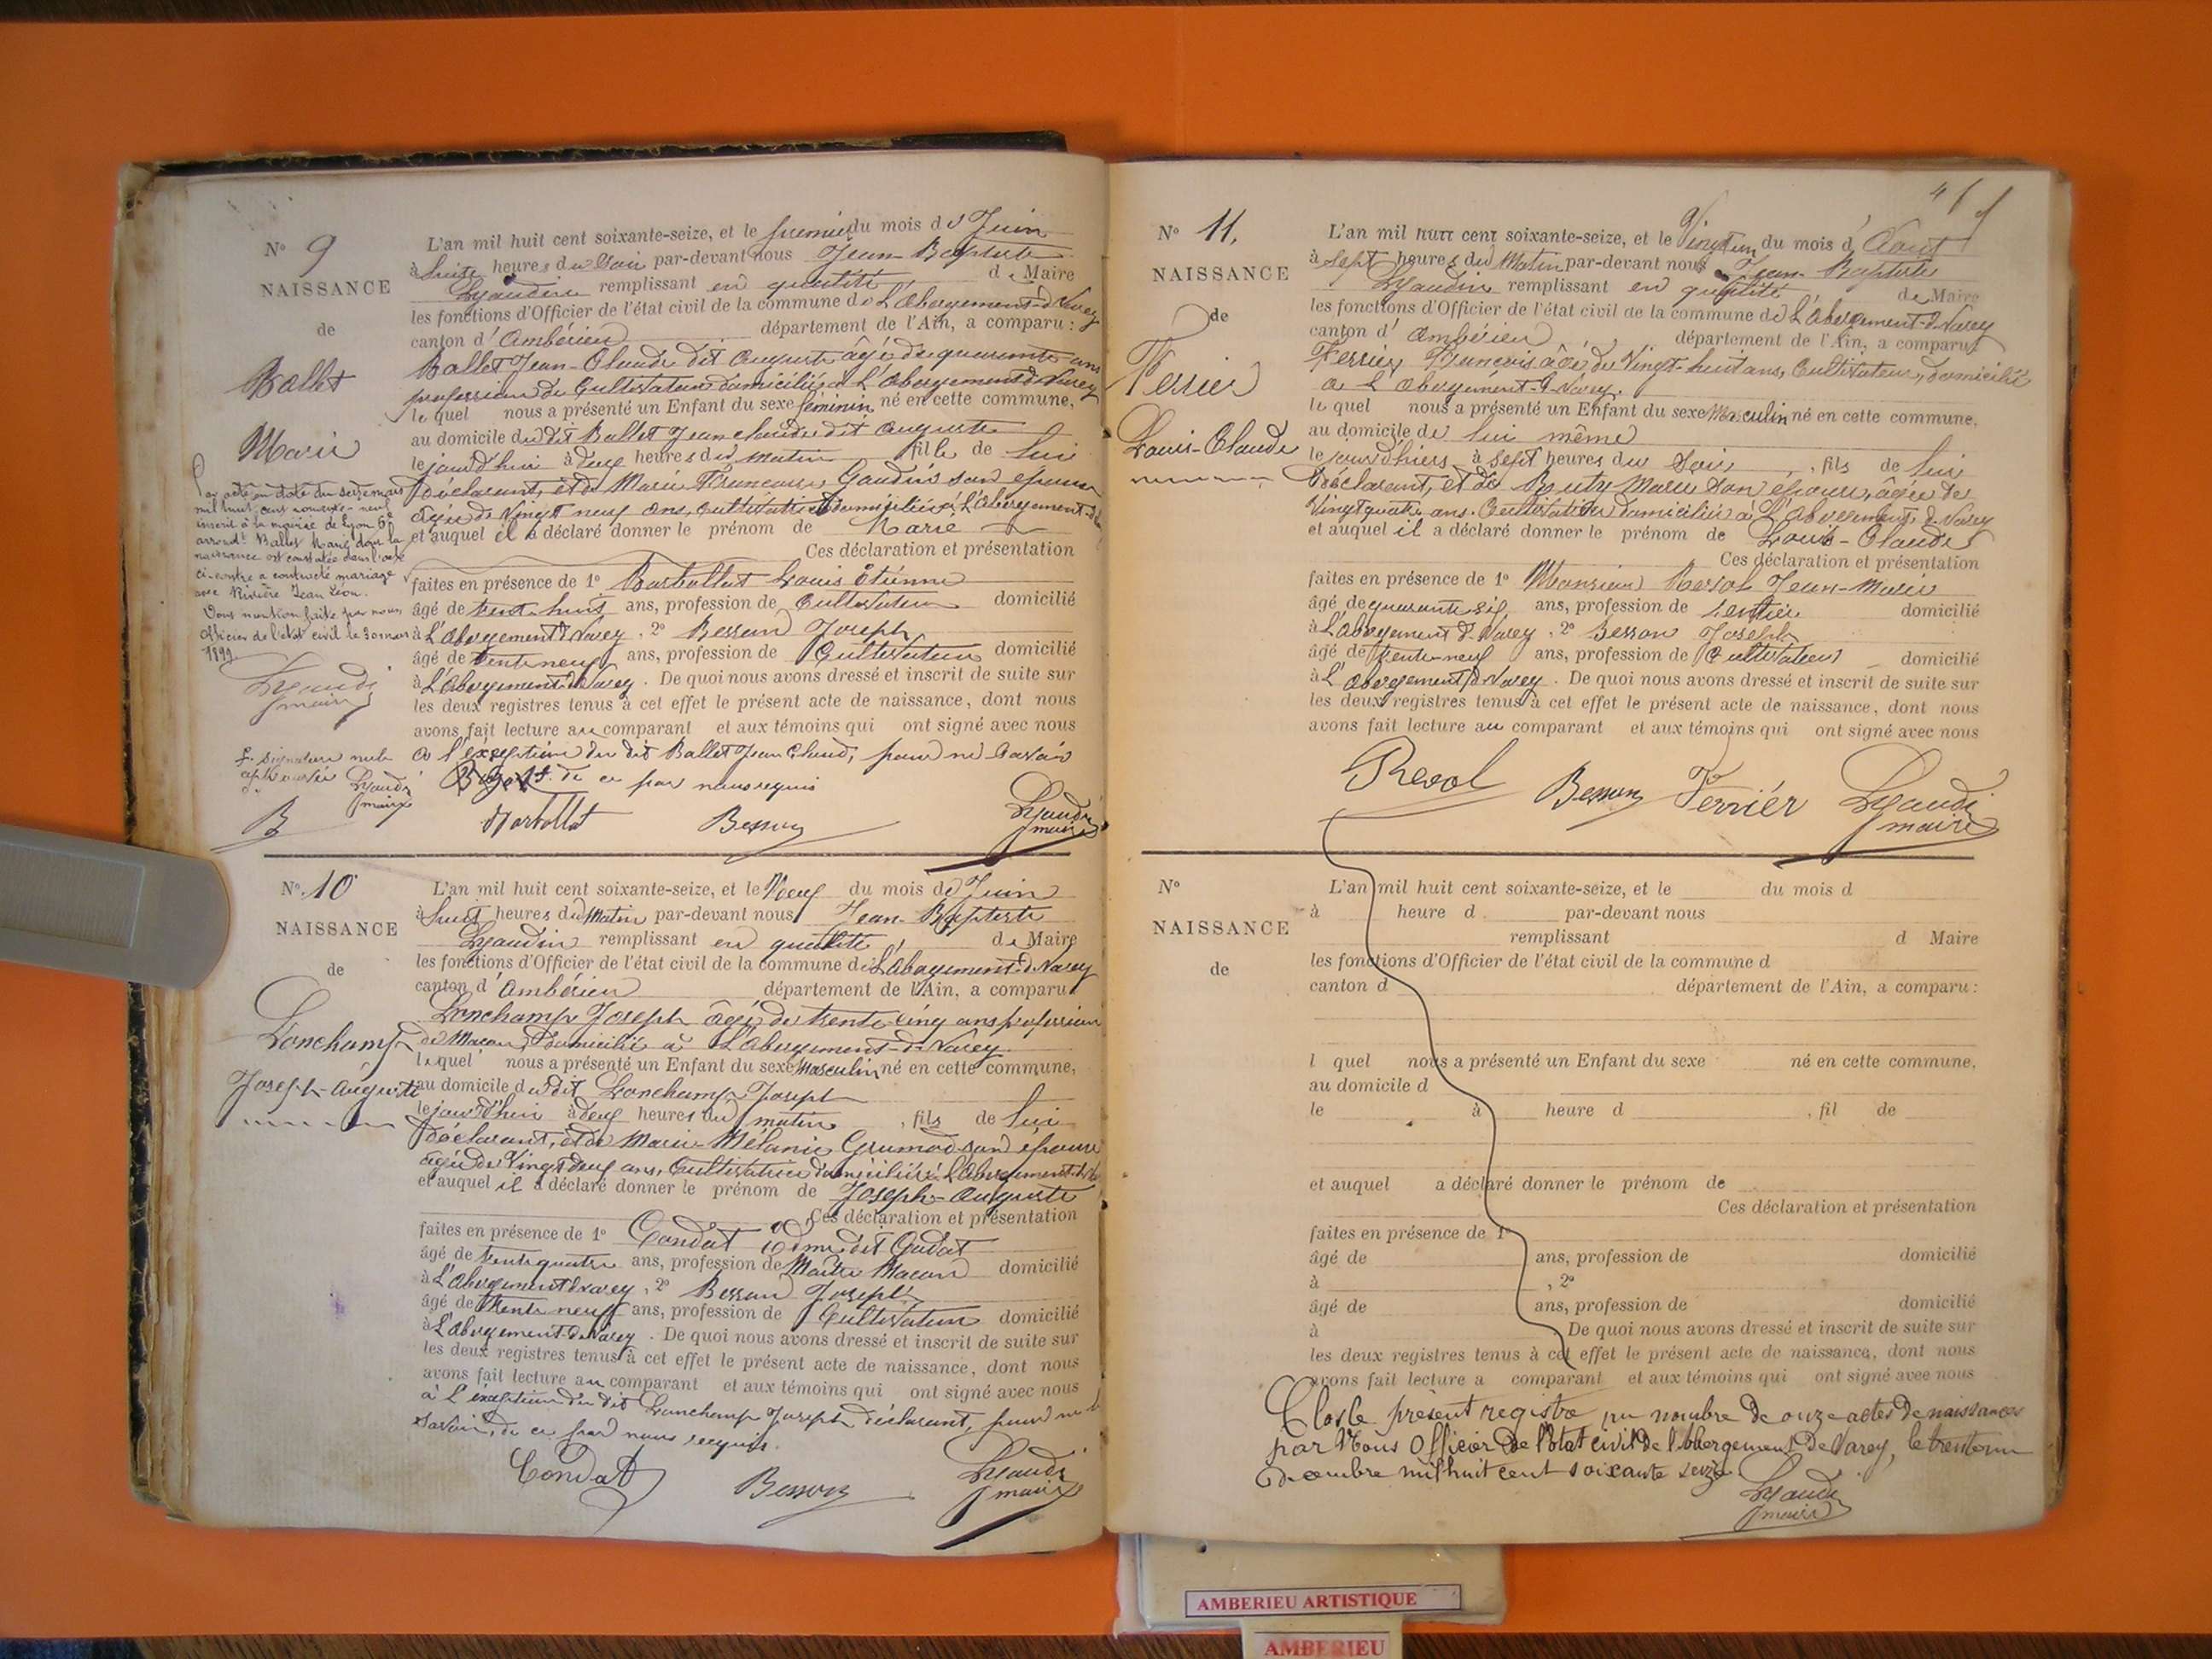 N° 9
NAISSANCE
de
Ballet
Marie
Par acte en date du seize mars
mil huit cent nonante-neuf
inscrit à la mairie de Lyon 6e
arrondt Ballet Marie dont la
naissance est constatée dans l'acte
ci-contre a contracté mariage
avec Rivière Jean Léon.
Dont mention faite par nous
Officier de l'état civil le 30 mars
1899
maire
signature nulle
maire
L'an mil huit cent soixante-seize, et le premier du mois de Juin
à huit heures du Soir par-devant nous Jean-Baptiste
Lyaudin remplissant en qualité de Maire
les fonctions d'Officier de l'état civil de la commune de L'Abergement-de-Varey
canton d'Ambérieu département de l'Ain, a comparu :
Ballet Jean-Claude dit Auguste âgé de quarante ans
profession de Cultivateur domicilié à L'Abergement-de-Varey
lequel nous a présenté un Enfant du sexe féminin né en cette commune,
au domicile du dit Ballet Jean claude dit Auguste
le jourd'hui à deux heures du matin fille de lui
déclarant, et de Marie Françoise Gaudis son épouse
âgée de Vingt neuf ans, cultivatrice domiciliée à L'Abergement-de
et auquel il a déclaré donner le prénom de Marie
Ces déclaration et présentation
faites en présence de 1° Barbollat Louis Etienne
âgé de trente-huit ans, profession de Cultivateur domicilié
à L'Abergement de Varey, 2° Besson Joseph
âgé de trente neuf ans, profession de Cultivateur domicilié
à L'Abergement de Varey. De quoi nous avons dressé et inscrit de suite sur
les deux registres tenus à cet effet le présent acte de naissance, dont nous
avons fait lecture au comparant et aux témoins qui ont signé avec nous
à l'exception du dit Ballet Jean Claude, pour ne savoir
de ce par nous requis
Barbollat Besson Lyaudin
maire
N° 10
NAISSANCE
de
Lonchamp
Joseph-Auguste
L'an mil huit cent soixante-seize, et le Neuf du mois de Juin
à huit heures du Matin par-devant nous Jean-Baptiste
Lyaudin remplissant en qualité de Maire
les fonctions d'Officier de l'état civil de la commune de L'Abergement-de-Varey
canton d'Ambérieu département de l'Ain, a comparu
Lonchamp Joseph âgé de trente-cinq ans profession
de Maçon, domicilié à L'Abergement-de-Varey
lequel nous a présenté un Enfant du sexe Masculin né en cette commune,
au domicile du dit Lonchamp Joseph
le jourd'hui à deux heures du matin, fils de lui
déclarant, et de Marie-Mélanie Grumod son épouse
âgée de Vingt deux ans, Cultivatrice domiciliée à L'Abergement-de-V
et auquel il a déclaré donner le prénom de Joseph-Auguste
Ces déclaration et présentation
faites en présence de 1° Condat
âgé de trente quatre ans, profession de Maître Maçon domicilié
à L'Abergement de Varey, 2° Besson Joseph
âgé de trente neuf ans, profession de Cultivateur domicilié
à L'Abergement-de-Varey. De quoi nous avons dressé et inscrit de suite sur
les deux registres tenus à cet effet le présent acte de naissance, dont nous
avons fait lecture au comparant et aux témoins qui ont signé avec nous
à l'exception du dit Lonchamp Joseph déclarant, pour ne
savoir, de ce par nous requis.
Condat Besson Lyaudin
maire
N° 11.
NAISSANCE
de
Ferrier
Louis-Claude
L'an mil huit cent soixante-seize, et le Vingt un du mois d'Août
à Sept heures du Matin par-devant nous Jean-Baptiste
Lyaudin remplissant en qualité de Maire
les fonctions d'Officier de l'état civil de la commune de L'Abergement-de-Varey
canton d'Ambérieu département de l'Ain, a comparu:
Ferrier François âgé de Vingt-huit ans, Cultivateur, domicilié
à L'Abergement-de-Varey.
lequel nous a présenté un Enfant du sexe Masculin né en cette commune,
au domicile de lui même
le jour d'hiers à Sept heures du Soir, fils de lui
Déclarant, et de Boutry Marie son épouse, âgée de
Vingt quatre ans. Cultivatrice domiciliée à L'Abergement-de-Varey
et auquel il a déclaré donner le prénom de Louis-Claude
Ces déclaration et présentation
faites en présence de 1° Monsieur Revol Jean-Marie
âgé de quarante six ans, profession de rentier domicilié
à L'Abergement de-Varey, 2° Besson Joseph
âgé de trente-neuf ans, profession de Cultivateur domicilié
à L'Abergement de Varey. De quoi nous avons dressé et inscrit de suite sur
les deux registres tenus à cet effet le présent acte de naissance, dont nous
avons fait lecture au comparant et aux témoins qui ont signé avec nous
Revol Besson Ferrier Lyaudin
maire
N°
NAISSANCE
de
L'an mil huit cent soixante-seize, et le du mois d
à heure d par-devant nous
remplissant d Maire
les fonctions d'Officier de l'état civil de la commune d
canton d département de l'Ain, a comparu:
l quel nous a présenté un Enfant du sexe né en cette commune,
au domicile d
le à heure d , fil de
et auquel a déclaré donner le prénom de
Ces déclaration et présentation
faites en présence de 1°
âgé de ans, profession de domicilié
à , 2°
âgé de ans, profession de domicilié
à De quoi nous avons dressé et inscrit de suite sur
les deux registres tenus à cet effet le présent acte de naissance, dont nous
avons fait lecture a comparant et aux témoins qui ont signé avec nous
Clos le présent registre au nombre de onze actes de naissances
par Nous Officier de l'Etat civil de l'Abergement de Varey, le trente un
décembre mil huit cent soixante seize
Lyaudin
maire
AMBERIEU ARTISTIQUE
AMBERIEU